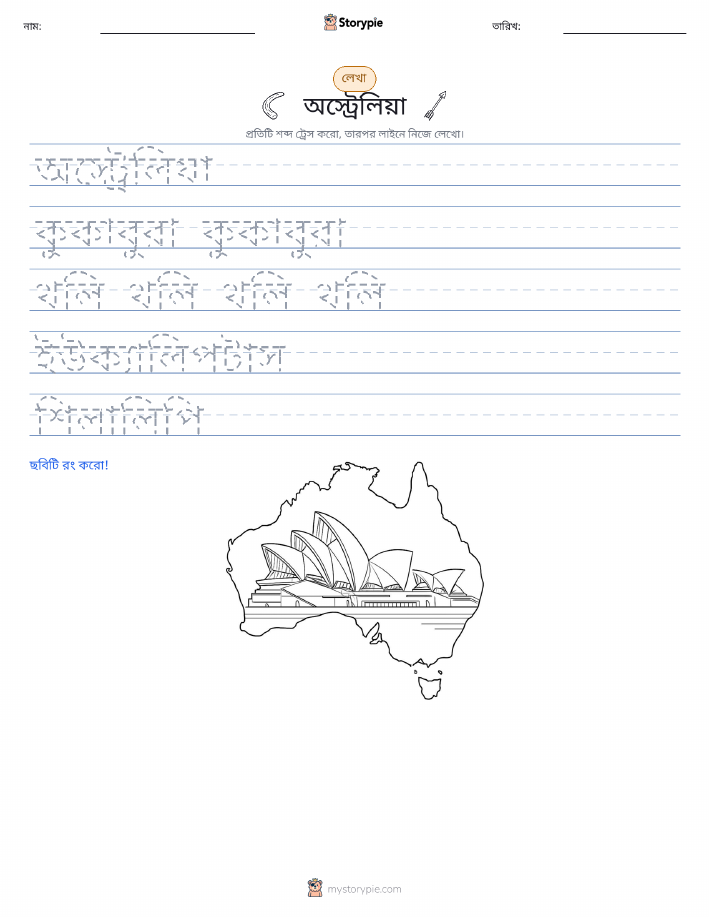 নাম:
Storypie
তারিখ:
লেখা
অস্ট্রেলিয়া
প্রতিটি শব্দ ট্রেস করো, তারপর লাইনে নিজে লেখো।
অস্ট্রেলিয়া
কুকাবুরা কুকাবুরা
থলি থলি থলি থলি
ইউক্যালিপটাস
শিলালিপি
ছবিটি রং করো!
mystorypie.com